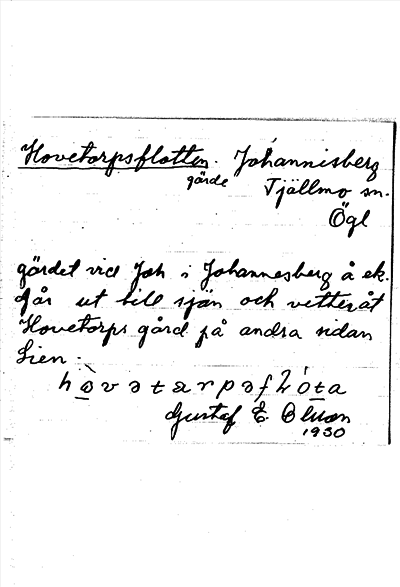 Hovetorpsflotten. Johannisberg
gärde Tjällmo sn.
Ögl
gärdet vid Joh i Johannesberg å ek.
går ut till sjön och vetter åt
Hovetorps gård på andra sidan
sien.
Gustaf E. Olsson
1930